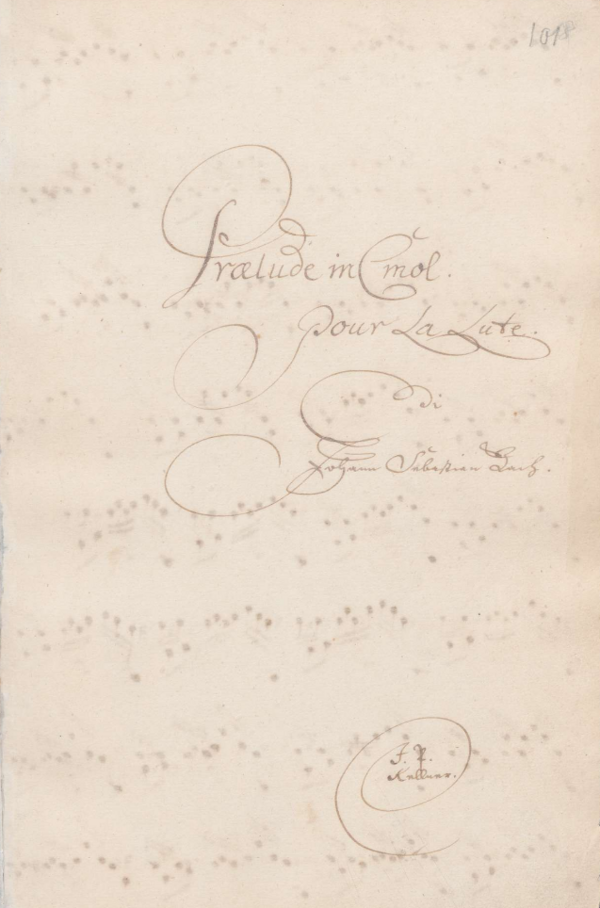 Prælude in Cmol.
pour La Lute.
di
Johann Sebastian Bach.
J. P.
Kellner.